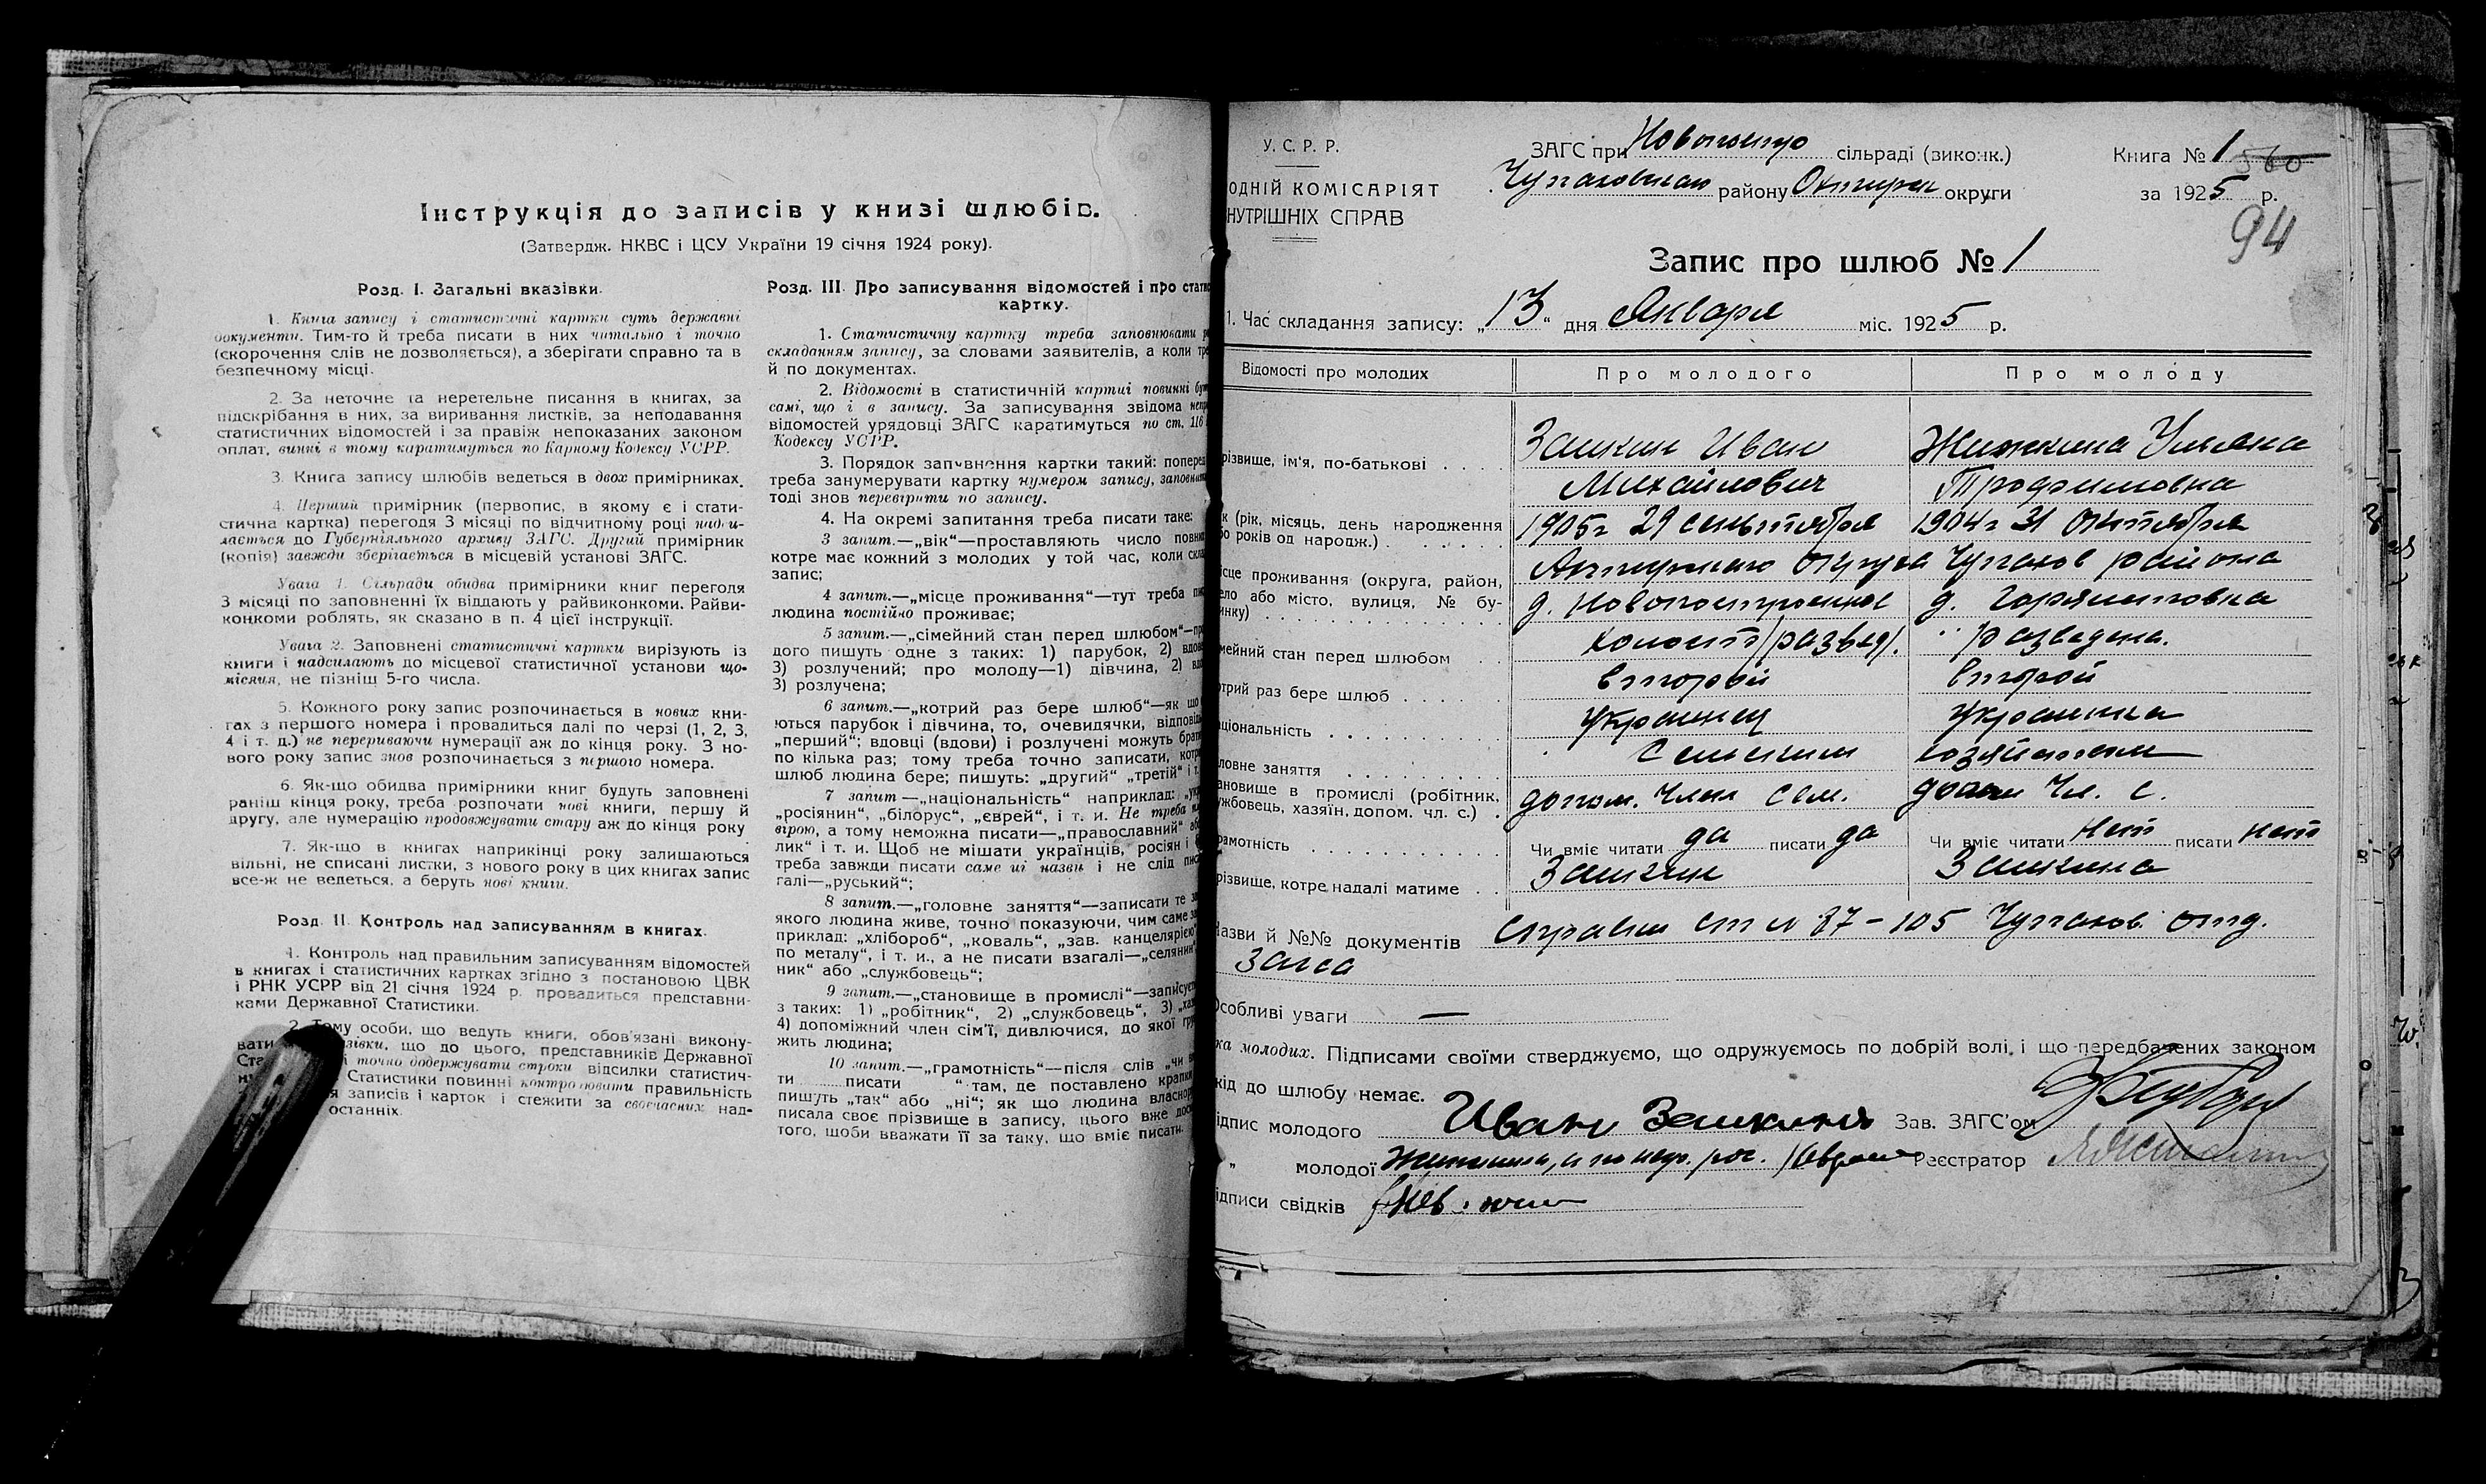 Інструкція до записів у книзі шлюбів.
(Затвердж. НКВС і ЦСУ України 19 січня 1924 року).
Розд. I. Загальні вказівки.
1. Книга запису і статистичні картки суть державні
документи. Тим-то й треба писати в них читально і точно
(скорочення слів не дозволяється), а зберігати справно та в
безпечному місці.
2. За неточне та неретельне писання в книгах, за
підскрібання в них, за виривання листків, за неподавання
статистичних відомостей і за правіж непоказаних законом
оплат, винні в тому каратимуться по Карному Кодексу УСРР.
3. Книга запису шлюбів ведеться в двох примірниках.
4. Перший примірник (первопис, в якому є і стати-
стична картка) перегодя 3 місяці по відчитному році надси-
лається до Губерніяльного архиву ЗАГС. Другий примірник
(копія) завжди зберігається в місцевій установі ЗАГС.
Увага 1. Сільради обидва примірники книг переголя
3 місяці по заповненні їх віддають у райвиконкоми. Райви-
конкоми роблять, як сказано в п. 4 цієї інструкції.
Увага 2. Заповнені статистичні картки вирізують із
книги і надсилають до місцевої статистичної установи що-
місяця, не пізніш 5-го числа.
5. Кожного року запис розпочинається в нових кни-
гах з першого номера і провадиться далі по черзі (1, 2, 3,
4 і т. д.) не перериваючи нумерації аж до кінця року. З но-
вого року запис знов розпочинається з першого номера.
6. Як-що обидва примірники книг будуть заповнені
раніш кінця року, треба розпочати нові книги, першу й
другу, але нумерацію продовжувати стару аж до кінця року
7. Як-що в книгах наприкінці року залишаються
вільні, не списані листки, з нового року в цих книгах запис
все-ж не ведеться, а беруть нові книги.
Розд. II. Контроль над записуванням в книгах.
1. Контроль над правильним записуванням відомостей
в книгах і статистичних картках згідно з постановою ЦВК
і РНК УСРР від 21 січня 1924 р. провадиться представни-
ками Державної Статистики.
2. Тому особи, що ведуть книги, обов'язані викону-
вати що до цього, представників Державної
і точно додержувати строки відсилки статистич-
Статистики повинні контролювати правильність
записів і карток і стежити за своєчасних над-
останніх.
Розд. III. Про записування відомостей і про статис
картку.
1. Статистичну картку треба заповнювати
складанням запису, за словами заявителів, а коли тре
й по документах.
2. Відомості в статистичній картці повинні бут
самі, що і в запису. За записування звідома непр
відомостей урядовці ЗАГС каратимуться по ст. 116
Кодексу УСРР.
3. Порядок заповнення картки такий: поперед
треба занумерувати картку нумером запису, заповнити
тоді знов перевірити по запису.
4. На окремі запитання треба писати таке:
3 запит.—„вік“—проставляють число повних
котре має кожний з молодих у той час, коли скла
запис;
4 запит.—„місце проживання“—тут треба
людина постійно проживає;
5 запит.—„сімейний стан перед шлюбом“—про
дого пишуть одне з таких: 1) парубок, 2) вдове
3) розлучений; про молоду—1) дівчина, 2) вд
3) розлучена;
6 запит.—„котрий раз бере шлюб“—як що
ються парубок і дівчина, то, очевидячки, відповід
„перший“; вдовці (вдови) і розлучені можуть брати
по кілька раз; тому треба точно записати, котр
шлюб людина бере; пишуть: „другий“ „третій“ і т.
7 запит—„національність“ наприклад: „укр
„росіянин“, „білорус“, „єврей“, і т. и. Не треба
вірою, а тому неможна писати—„православний“ або
лик“ і т. и. Щоб не мішати українців, росіян і
треба завжди писати саме ці назви і не слід пис
галі—„руський“;
8 запит.—„головне заняття“—записати те за
якого людина живе, точно показуючи, чим саме за
приклад: „хлібороб“, „коваль“, „зав. канцелярією“
по металу“, і т. и., а не писати взагалі—„селянин“
ник“ або „службовець“;
9 запит.—„становище в промислі“—записуєть
з таких: 1) „робітник“, 2) „службовець“, 3) „хаз
4) допоміжний член сім'ї, дивлючися, до якої гру
жить людина;
10 запит.—„грамотність“—після слів „чи
ти ..... писати “ там, де поставлено крапки
пишуть „так“ або „ні“; як що людина власнор
писала своє прізвище в запису, цього вже дос
того, щоби вважати її за таку, що вміє писати.
У. С. Р. Р.
ОДНІЙ КОМІСАРІЯТ
НУТРІШНІХ СПРАВ
ЗАГС при сільраді (виконк.)
району Охтирск округи
Книга № 1 560
за 1925 р.
94
Запис про шлюб № 1
1. Час складання запису: „13“ дня Января міс. 1925 р.
Відомості про молодих Про молодого Про молоду
різвище, ім'я, по-батькові Заикин Иван Жижкина Ульяна
Михайлович Трофимовна
к (рік, місяць, день народження 1905 г 29 сентября 1904 г 31 Октября
о років од народж.)
ісце проживання (округа, район, Ахтырского Округа Чупахов района
ело або місто, вулиця, № бу- д. Новопостроенное д.
инку)
мейний стан перед шлюбом холост/развед/. разведена.
трий раз бере шлюб второй второй
ціональність Украинец Украинка
ловне заняття Сельским хозяйством
ановище в промислі (робітник, допом. Член сем. допом Чл. с.
жбовець, хазяїн, допом. чл. с.)
рамотність Чи вміє читати да писати да Чи вміє читати Нет писати нет
різвище, котре надалі матиме Заикин Заикина
азви й №№ документів Справки 37-105 Чупахов. отд.
Загса
Особливі уваги —
ка молодих. Підписами своїми стверджуємо, що одружуємось по добрій волі і що передбачених законом
кід до шлюбу немає.
ідпис молодого Иван Заикин Зав. ЗАГС'ом
„ молодої Реєстратор
ідписи свідків